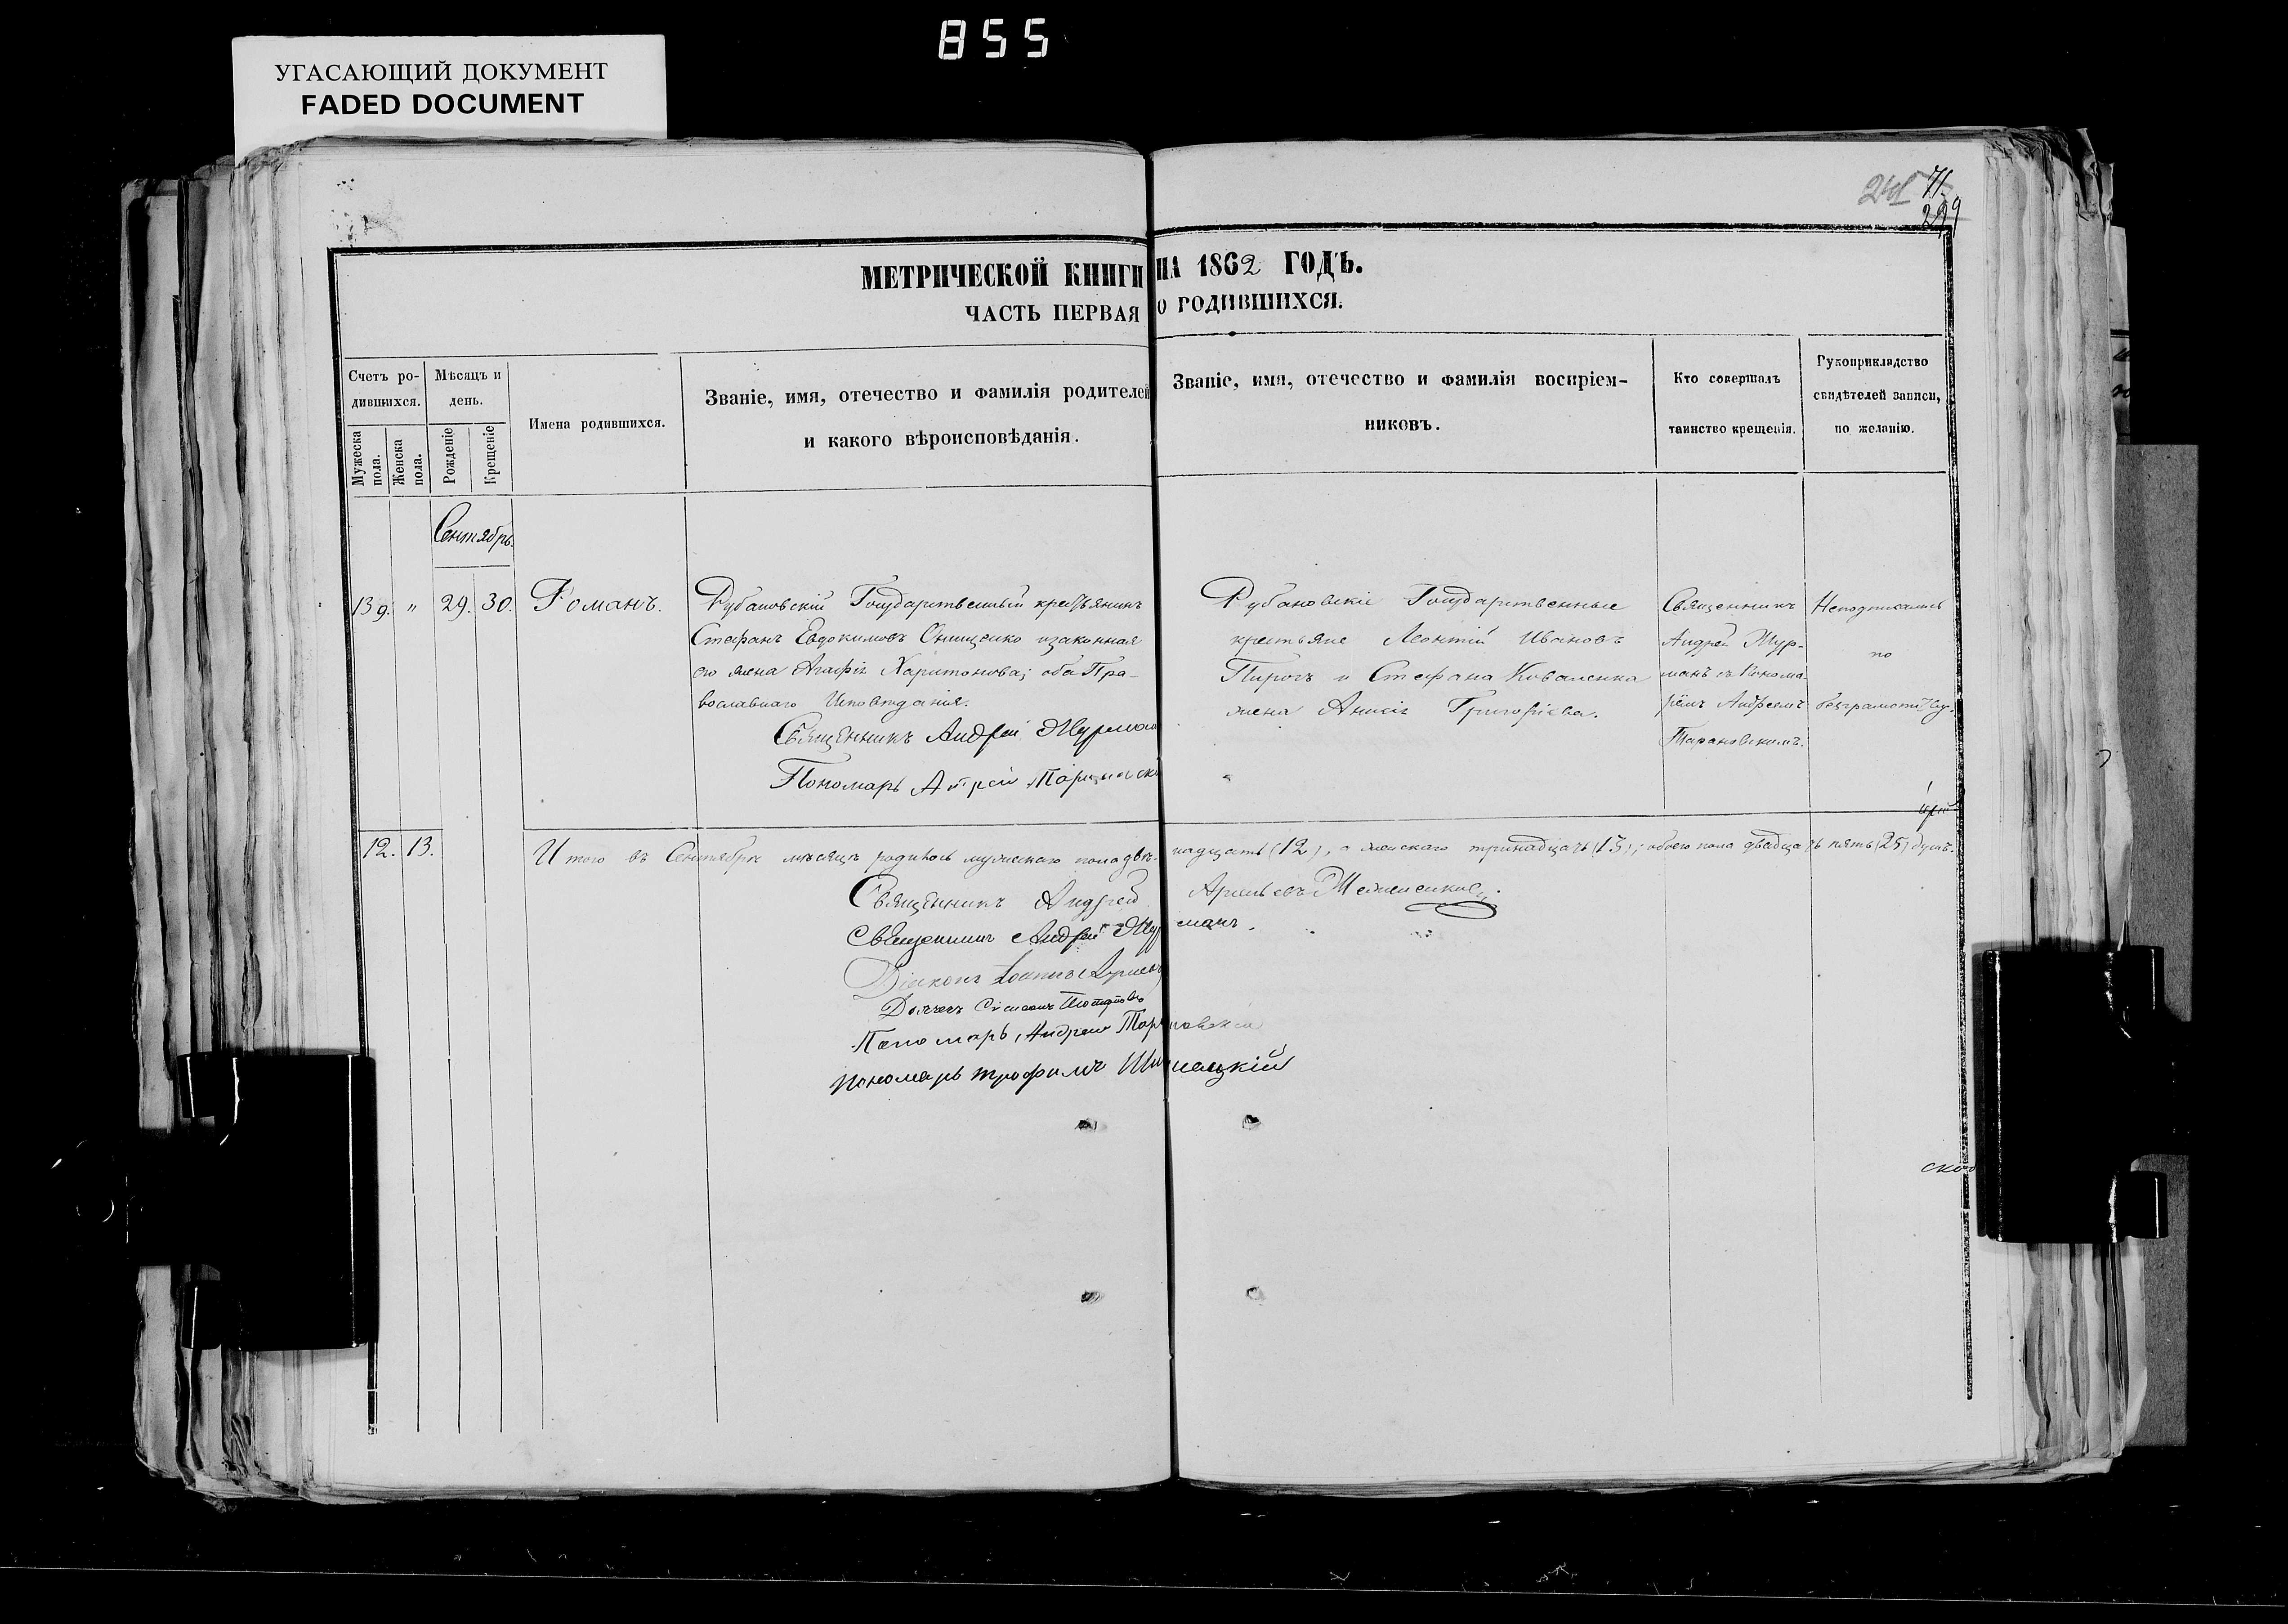 855
УГАСАЮЩИЙ ДОКУМЕНТ
FADED DOCUMENT
241 71.
299
МЕТРИЧЕСКОЙ КНИГИ НА 1862 ГОДЪ.
ЧАСТЬ ПЕРВАЯ О РОДИВШИХСЯ.
Счетъ ро-
дившихся.
Мужеска пола.
Женска пола.
Мѣсяцъ и
день.
Рожденіе
Крещеніе
Имена родившихся.
Званіе, имя, отечество и фамилія родителей
и какого вѣроисповѣданія.
Званіе, имя, отечество и фамилія воспріем-
никовъ.
Кто совершалъ
таинство крещенія.
Рукоприкладство
свидѣтелей записи,
по желанію.
Сентябрь.
139. " 29. 30. Романъ.
Рубановскій Государственный крестьянинъ
Стефанъ Евдокимовъ Онищенко изаконная
его жена Агафія Харитонова; оба Пра-
вославнаго Исповѣданія.
Священникъ Андрей Журман
Пономарь Андрей Тарановск
Рубановскіе Государственные
крестьяне Леонтій Ивановъ
Пирогъ и Стефана Коваленка
жена Анисія Григоріева.
Священникъ
Андрей Жур-
манъ съ Понома-
рёмъ Андреемъ
Тарановскимъ.
Неподписались
по
безграмотству.
12. 13. Итого въ Сентябрѣ мѣсяцѣ родилось мужескаго пола двѣ-надцать (12), а женскаго тринадцать (13); обоего пола двадцать пять (25) душъ.
Священникъ Андрей
Священникъ Андрей Журманъ.
Діаконъ Іоаннъ
Дьячекъ
Пономарь Андрей Тарановскій
пономарь трофимъ